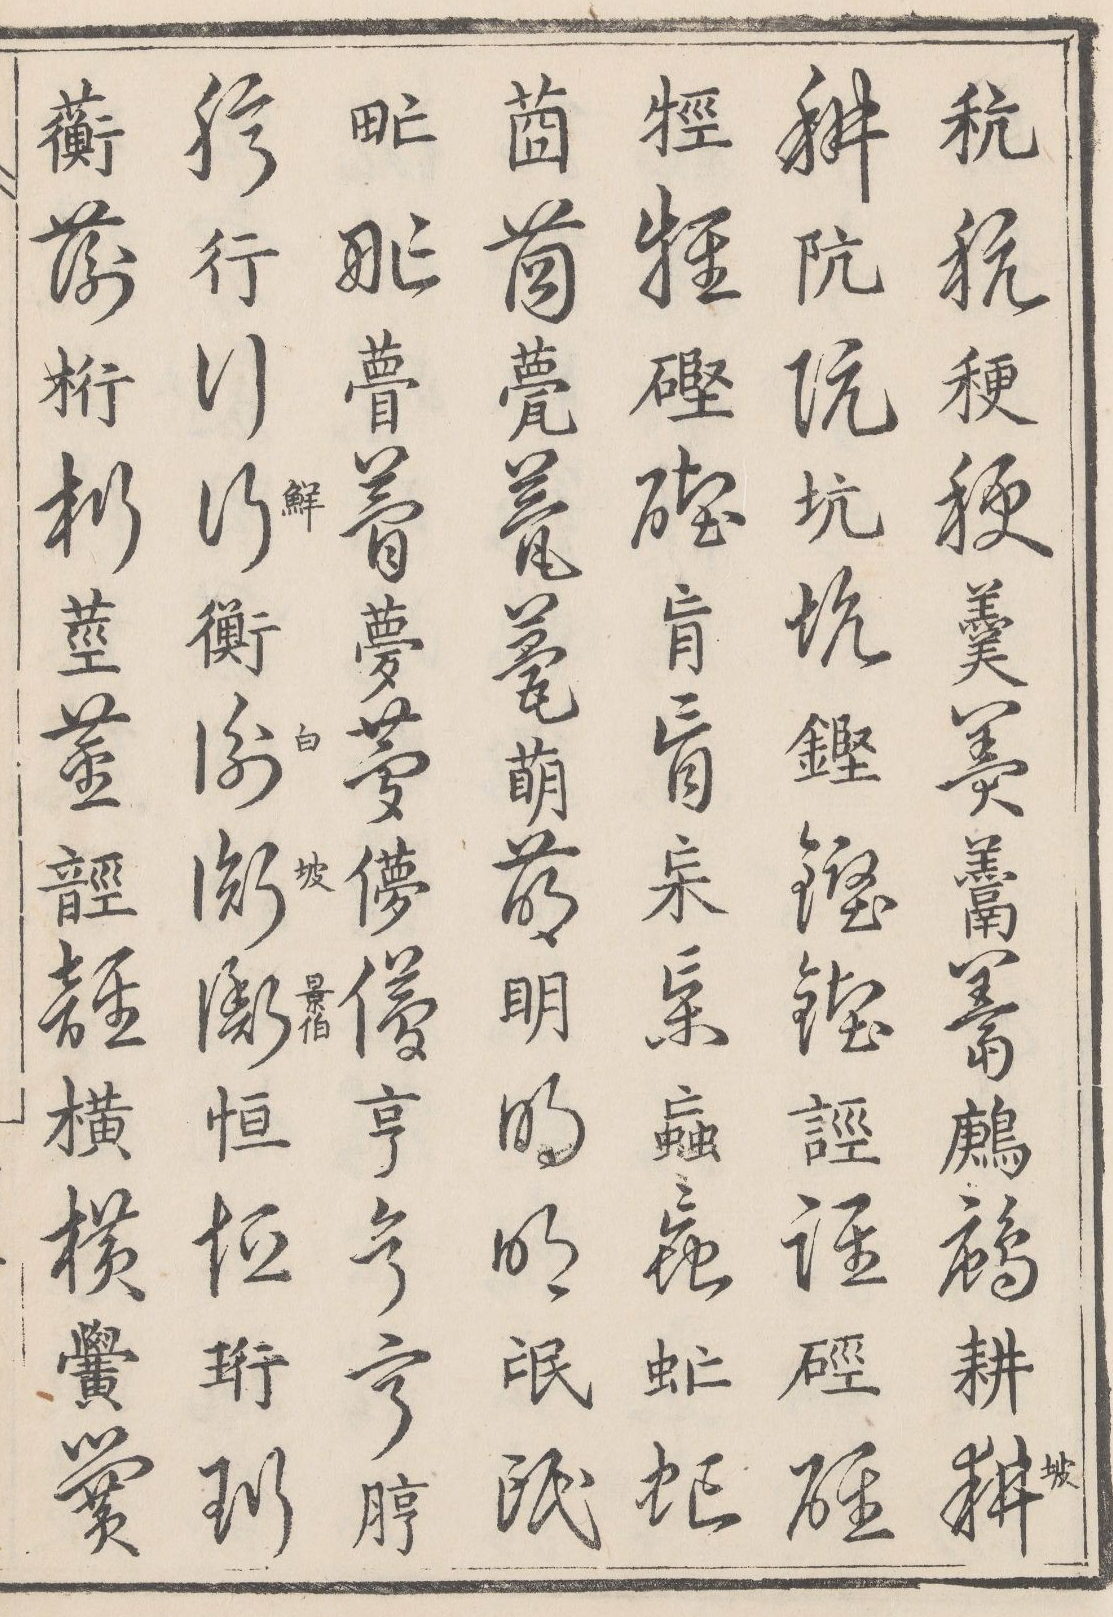 秔秔稉稉羹羹鶊鶊耕耕坡
耕阬阬坑坑鏗鏗鏗誙誙硜硜
牼牼盲盲杗杗蝱蝱虻虻
莔莔甍甍甍萌萌明明明氓氓
甿甿瞢瞢夢夢儚儚亨亨亨脝
脝行行行鮮衡衡白衡坡衡景伯恒恒珩珩
蘅蘅桁桁莖莖橫橫黌黌